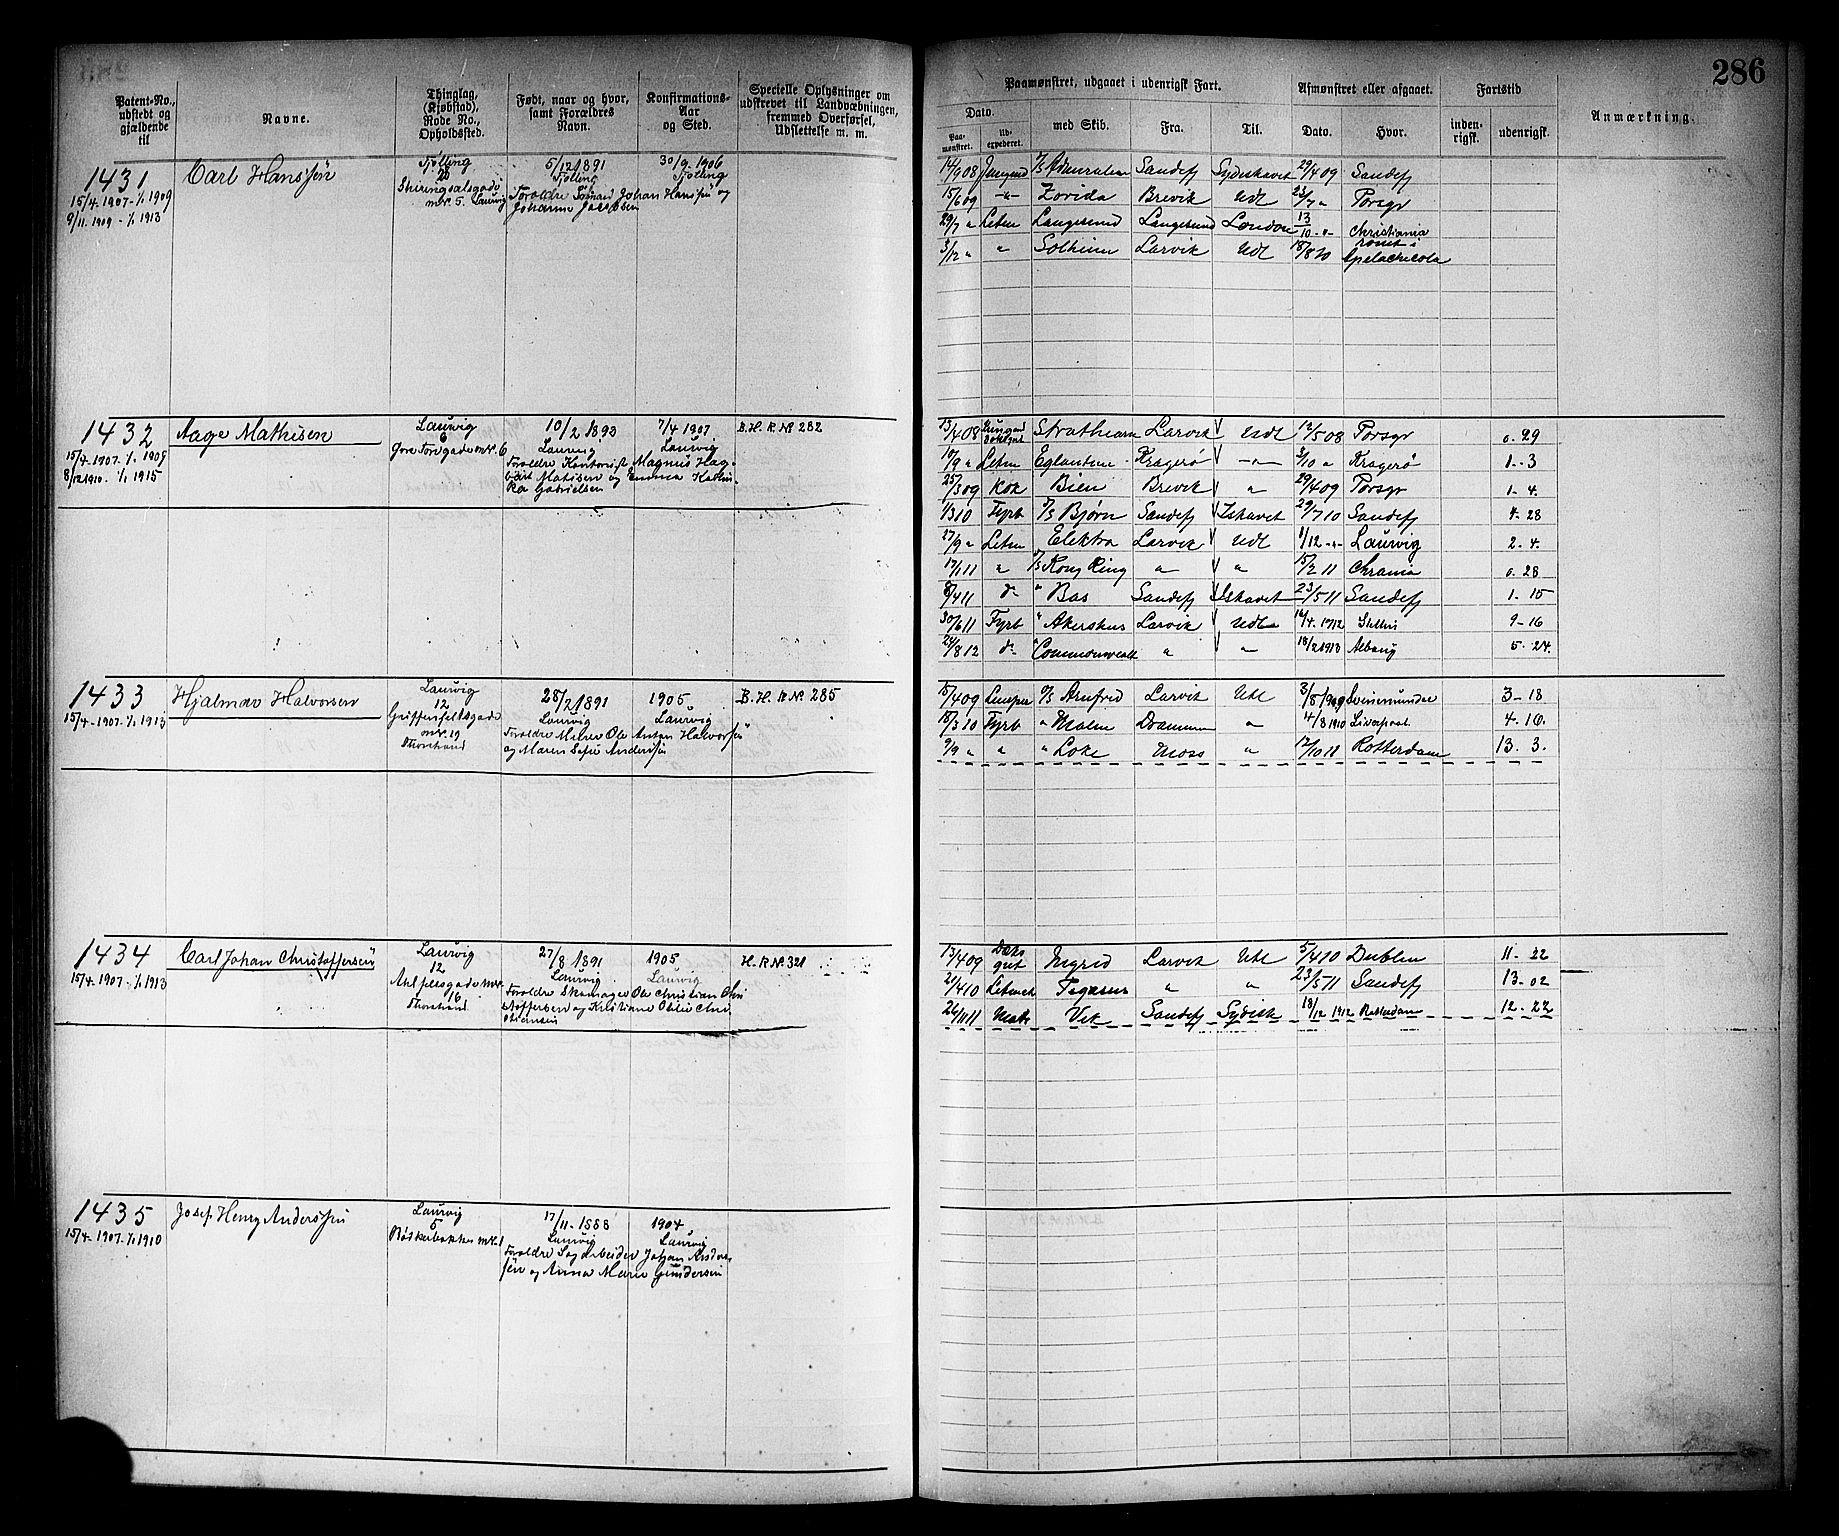 286
Patent-No., udstedt og gjældende til
Navne.
Thinglag, (Kjøbstad), Rode No., Opholdssted.
Født, naar og hvor, samt Forældres Navn.
Konfirmations-Aar og Sted.
Specielle Oplysninger om udskrevet til Landværnet, fremmed Overførsel, Udslettelse m. m.
Paamønstret, udgaaet i udenrigsk Fart.
Dato.
Paamønstret.
med Skib.
Fra.
Til.
Afmønstret eller afgaaet.
Dato.
Hvor.
Fartstid
indenrigsk.
udenrigsk.
Anmærkning.
1431
15/4 1907-1/1 1909
9/11 1909 - 1/1 1913
Carl Hanssen
Tjølling
Skiringsalsgade
nr. 5. Laurvig
5/12 1891
Tjølling
Forældre Sømand Johan Hanssen og
Johanne Jacobsen
30/9 1906
Tjølling
14/9 08 Jungmd Admiralen Sandefj Sydishavet 29/4 09 Sandefj
15/6 09 -"- Zorida Brevik Udl 23/7 " Porsgr
29/7 " Letm Langesund Langesund London 13/10 " Christiania
3/12 " " Solheim Larvik Udl 18/8 10 rømt i
Apelachicola
1432
15/4 1907. 1/1 1909
8/12 1910. 1/1 1915
Aage Mathisen
Laurvig
6
Gore Torvgade nr. 6
10/2 1893
Laurvig
7/4 1907
Laurvig
Forældre Kontorist Magnus Hag-
bart Mathisen og Emma Kathin-
ka Gabrielsen
B. H. R. No 282
13/4 08 Strathearn Larvik Udl 12/5 08 Porsgr 0. 29
10/9 " Letm Eglantine Kragerø -"- 3/10 " Kragerø 1. 3
25/3 09 Kok Bien Brevik " 29/4 09 Porsgr 1. 4.
1/3 10 Fyrb D/S Bjørn Sandefj Ishavet 29/7 10 Sandefj 4. 28
27/9 " Letm Elektra Larvik Udl 1/12 " Laurvig 2. 4.
17/1 11 " D/S Kong Ring " " 15/2 11 Chrania 0. 28
8/4 11 do " Bas Sandefj Ishavet 23/5 11 Sandefj 1. 15
30/6 11 Fyrb " Akershus Larvik Udl 16/4 1912 9-16
24/8 12 do " Commonwealt " " 18/2 1913 Albany 5. 24.
1433
15/4-1907. 1/1 1913
Hjalmar Halvorsen
Laurvig
12
Griffenfeldtsgade
nr. 19
Thorstrand
28/2 1891
Laurvig
1905
Laurvig
Forældre Murer Ole Anton Halvorsen
og Maren Sofie Andersen
B. H. R No 285
15/4 09 Lemper D/S Arnfred Larvik Udl 3/8 1909 Svinemunde 3-18
18/3 10 Fyrb " Malm Drammen " 4/8 1910 Liverpool 4. 16.
9/9 " " " Loke Moss " 12/10 11 Rotterdam 13. 3.
1434
15/4-1907-1/1 1913
Carl Johan Christoffersen
Laurvig
12
Ahlfeldsgade nr.
16
Thorstrand
27/8 1891
Laurvig
1905
Laurvig
Forældre Skomager Ole Christian Chri
stoffersen og Kristiane Otilie Chri
stiansen
H. R No 321
13/4 09 Dæks
gut Ingrid Larvik Udl 5/4 10 Dublin 11. 22
21/4 10 Letmat Pegasus " " 23/5 11 Sandefj 13. 02
26/11 11 Matr Vik Sandefj Sydish 18/12 1912 Rotterdam 12. 22
1435
15/4-1907. 1/1 1910
Josef Henry Anderssen
Laurvig
5
Bøkkerbakken nr. 1
17/11-1888
Laurvig
1904
Laurvig
Forældre Sagarbeider Johan Anders-
sen og Anna Marie Gundersen